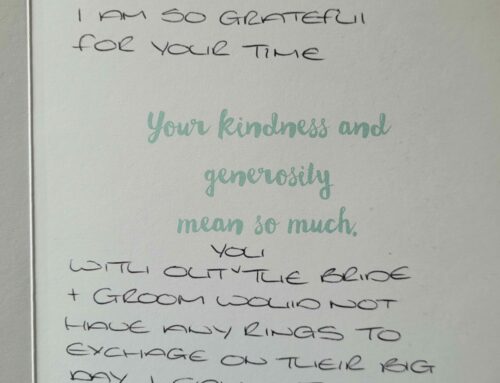 I AM SO GRATEFUL
FOR YOUR TIME
Your kindness and
generosity
mean so much.
YOU
WITH OUT THE BRIDE
+ GROOM WOULD NOT
HAVE ANY RINGS TO
EXCHAGE ON THEIR BIG
DAY. I